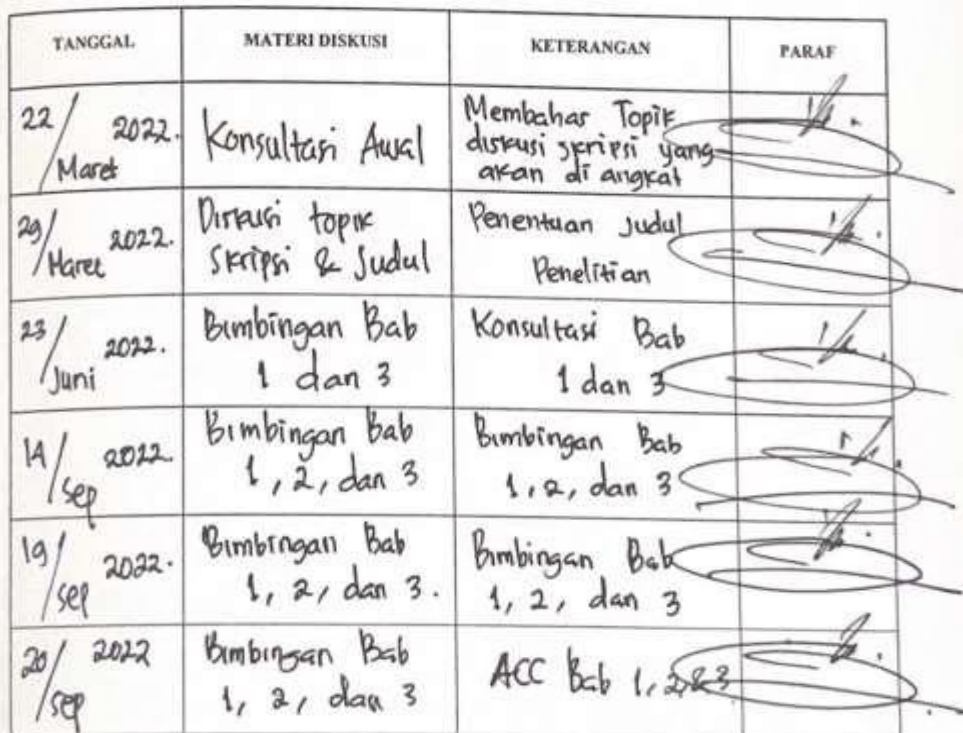 TANGGAL MATERI DISKUSI KETERANGAN PARAF
22/Maret 2022. Konsultasi Awal Membahas Topik
diskusi skripsi yang
akan di angkat
29/Maret 2022. Diskusi topik Penentuan Judul
Skripsi & Judul Penelitian
23/Juni 2022. Bimbingan Bab Konsultasi Bab
1 dan 3 1 dan 3
14/Sep 2022. Bimbingan Bab Bimbingan Bab
1, 2, dan 3 1, 2, dan 3
19/Sep 2022. Bimbingan Bab Bimbingan Bab
1, 2, dan 3. 1, 2, dan 3
20/Sep 2022 Bimbingan Bab ACC Bab 1, 2, & 3
1, 2, dan 3